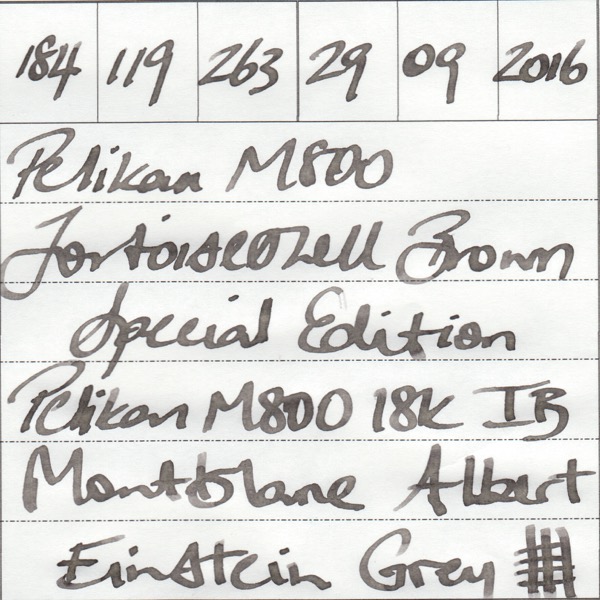 184 119 263 29 09 2016
Pelikan M800
Tortoiseshell Brown
Special Edition
Pelikan M800 18K IB
Montblanc Albert
Einstein Grey